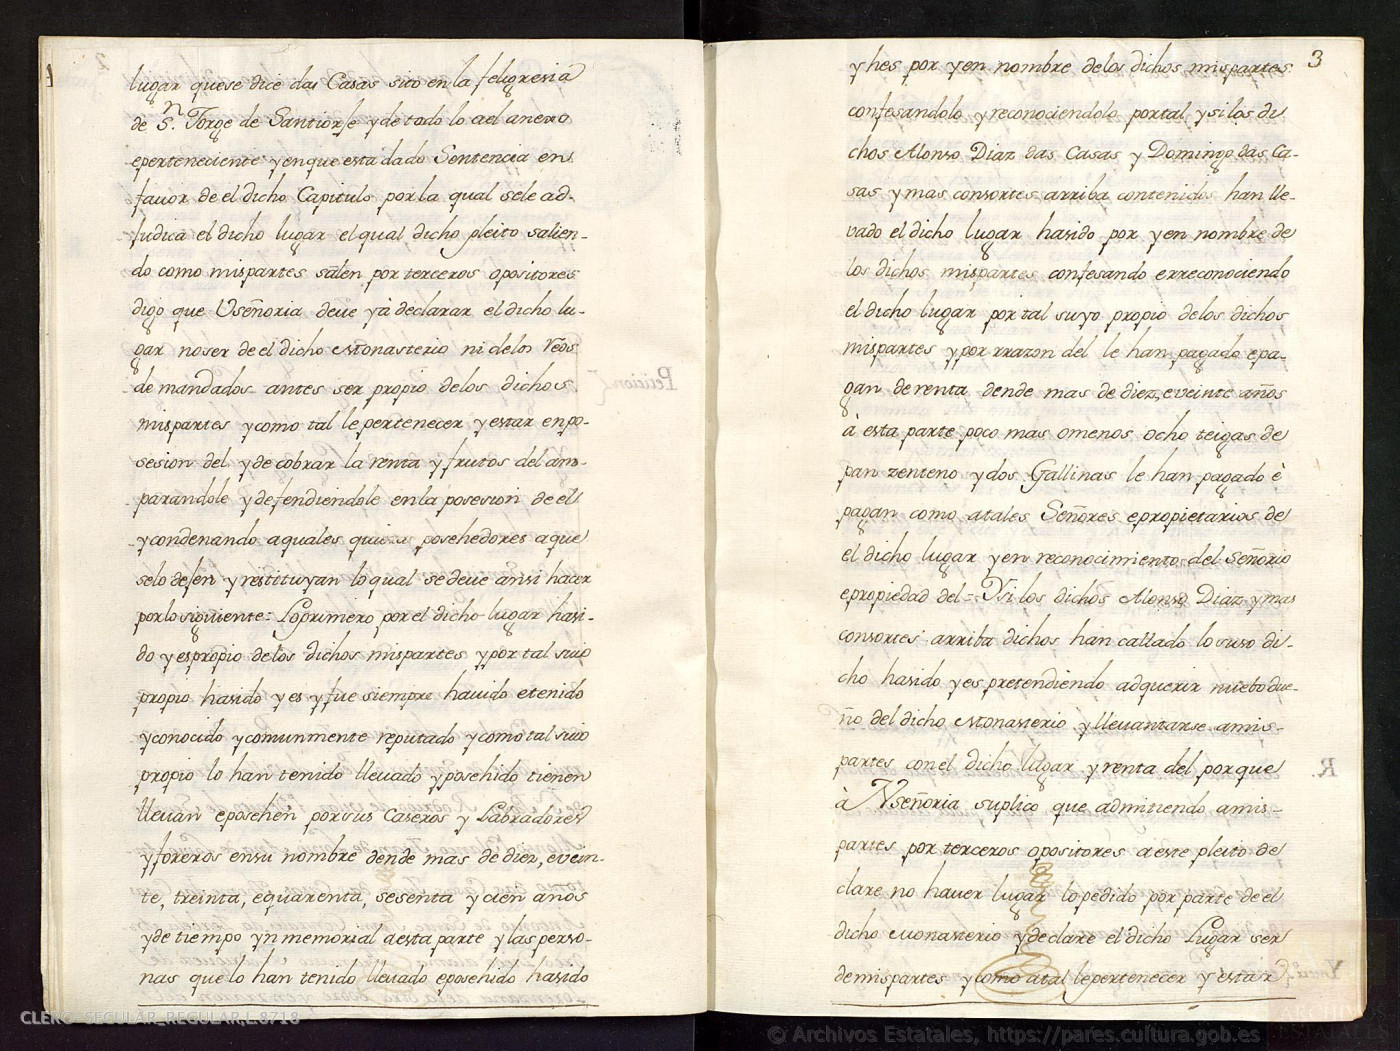 lugar quese dice das Casas sito en la feligresia
de Sn. Jorge de Santiorje y de todo lo ael anexo
eperteneciente yenque esta dado Sentencia en
favor de el dicho Capitulo por la qual sele ad-
judica el dicho lugar el qual dicho pleito salien-
do como mispartes salen por terceros opositores
digo que Useñoria deue yà declarar el dicho lu-
gar noser de el dicho Monasterio ni delos Reos
demandados antes ser propio delos dichos
mispartes ycomo tal le pertenecer yestar enpo-
sesion del yde cobrar la renta yfrutos del am-
parandole ydefendiendole enla posesion de el
ycondenando aquales quiera posehedores aque
selo dejen yrestituyan loqual se deue ansi hacer
porlo siguiente= Loprimero por el dicho lugar hasi-
do yespropio delos dichos mispartes ypor tal suio
propio hasido yes yfue siempre hauido etenido
yconocido ycomunmente reputado ycomo tal suio
propio lo han tenido lleuado yposehido tienen
lleuan eposehen porsus Caseros y Labradores
yforeros ensu nombre dende mas de diez, evein-
te, treinta, equarenta, sesenta ycien años
yde tiempo ynmemorial aesta parte ylas perso-
nas quelo han tenido lleuado eposehido hasido
3
yhes por yen nombre delos dichos mispartes
confesandolo yreconociendolo portal ysilos di
chos Alonso Diaz das Casas y Domingo das Ca-
sas ymas consortes arriba contenidos han lle-
vado el dicho lugar hasido por yen nombre de
los dichos mispartes confesando erreconociendo
el dicho lugar portal suyo propio delos dichos
mispartes ypor rrazon del le han pagado epa-
gan de renta dende mas de diez, eveinte años
à esta parte poco mas omenos ocho teigas de
pan zenteno ydos Gallinas le han pagado è
pagan como atales Señores epropietarios de
el dicho lugar yen reconocimiento del Señorio
epropiedad del= Ysi los dichos Alonso Diaz ymas
consortes arriba dichos han callado lo suso di-
cho hasido yes pretendiendo adquerir nuebo due-
ño del dicho Monasterio yllevantarse amis-
partes conel dicho lugar yrenta del porque
à Vseñoria suplico que admitiendo amis-
partes por terceros opositores aeste pleito de
clare no hauer lugar lo pedido por parte de el
dicho Monasterio ydeclare el dicho Lugar ser
demispartes ycomo atal lepertenecer yestar
CLERO-SECULAR_REGULAR,L.8718
© Archivos Estatales, https://pares.cultura.gob.es